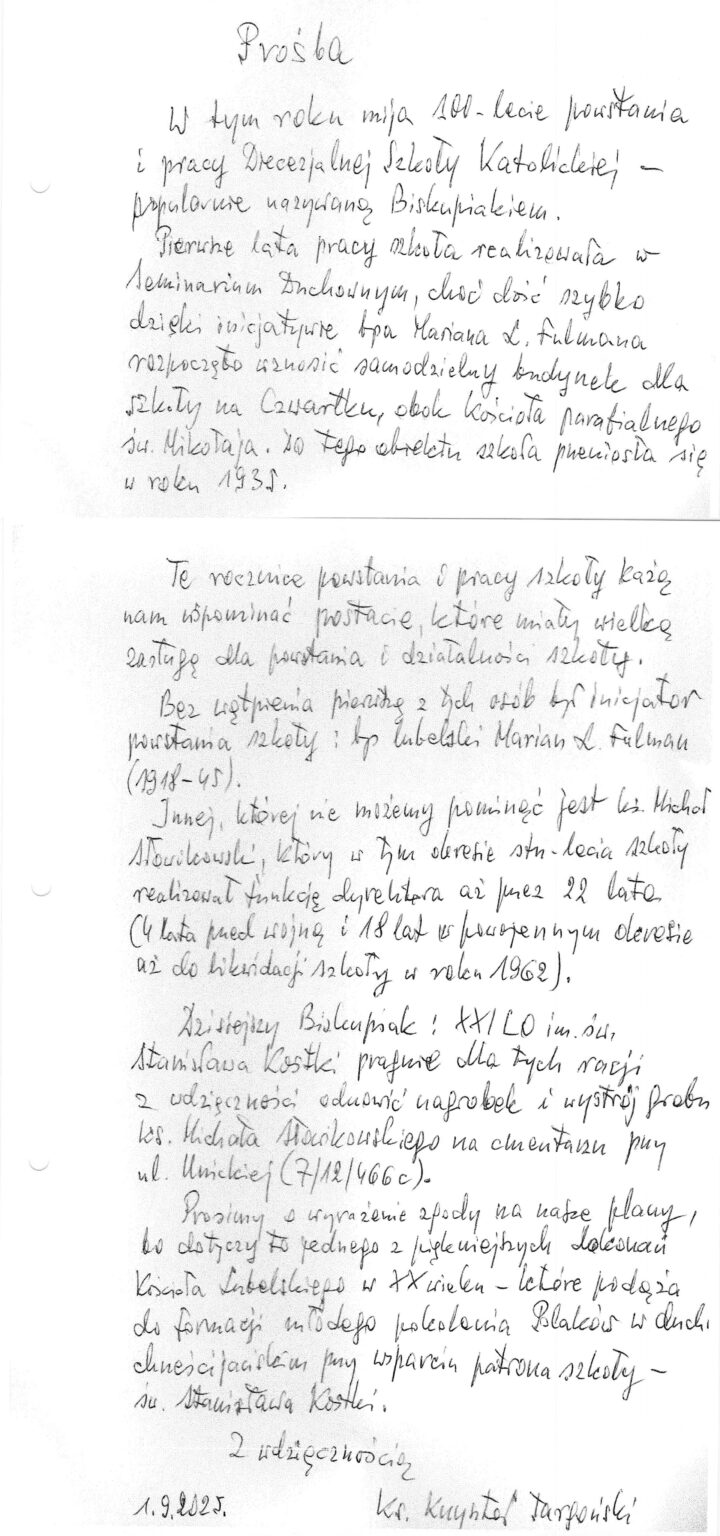 Prośba
W tym roku mija 100-lecie powstania
i pracy Diecezjalnej Szkoły Katolickiej –
popularnie nazywaną Biskupiakiem.
Pierwsze lata pracy szkoła realizowała w
Seminarium Duchownym, choć dość szybko
dzięki inicjatywie bpa Mariana L. Fulmana
rozpoczęto wznosić samodzielny budynek dla
szkoły na Czwartku, obok Kościoła parafialnego
św. Mikołaja. Do tego obiektu szkoła przeniosła się
w roku 1935.
Te rocznice powstania i pracy szkoły każą
nam wspominać postacie, które miały wielką
zasługę dla powstania i działalności szkoły.
Bez wątpienia pierwszą z tych osób był inicjator
powstania szkoły: bp lubelski Marian L. Fulman
(1918-45).
Innej, której nie możemy pominąć jest ks. Michał
Słowikowski, który w tym okresie stu-lecia szkoły
realizował funkcję dyrektora aż przez 22 lata
(4 lata przed wojną i 18 lat w powojennym okresie
aż do likwidacji szkoły w roku 1962).
Dzisiejszy Biskupiak: XXI LO im. św.
Stanisława Kostki pragnie dla tych racji
z wdzięczności odnowić nagrobek i wystrój grobu
ks. Michała Słowikowskiego na cmentarzu przy
ul. Unickiej (7/12/466c).
Prosimy o wyrażenie zgody na nasze plany,
bo dotyczy to jednego z piękniejszych dokonań
Kościoła Lubelskiego w XX wieku – które podąża
do formacji młodego pokolenia Polaków w duch
chrześcijańskim przy wsparciu patrona szkoły –
św. Stanisława Kostki.
Z wdzięcznością
1.9.2025. Ks. Krzysztof Targoński